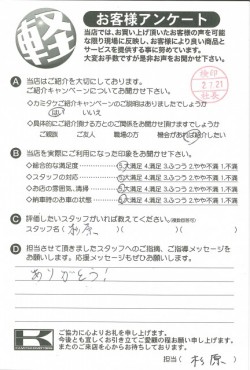 軽
お客様アンケート
当店では、お買い上げ頂いたお客様の声を可能
な限り現場に反映し、お客様により良い商品と
サービスを提供する事に努めています。
大変お手数ですが是非お声をお聞かせ下さい。
検印
2.1.21
社長
A 当店はご紹介を大切にしております。
ご紹介キャンペーンについてお聞かせ下さい。
・カミタケご紹介キャンペーンのご説明はありましたでしょうか
はい いいえ
・具体的にご紹介頂ける方とのご関係をお聞かせ頂けますでしょうか
ご親戚 ご友人 職場の方 機会があれば紹介したい
B 当店を実際にご利用になった印象をお聞かせ下さい。
◇総合的な満足度 5.大満足 4.満足 3.ふつう 2.やや不満 1.不満
◇スタッフの対応 5.大満足 4.満足 3.ふつう 2.やや不満 1.不満
◇お店の雰囲気、清掃 5.大満足 4.満足 3.ふつう 2.やや不満 1.不満
◇納車時のお車の状態 5.大満足 4.満足 3.ふつう 2.やや不満 1.不満
C 評価したいスタッフがいれば教えてください。(複数回答可)
スタッフ名( 杉原 )( )( )
D 担当させて頂きましたスタッフへのご指摘、ご指導メッセージを
お願いします。応援メッセージもぜひお願いします。
ありがとう!
K
ご協力に心よりお礼を申し上げます。
今後とも宜しくお引き立てご愛顧の程お願い申し上げます。
またのご来店を心からお待ちしております。
担当( 杉原 )